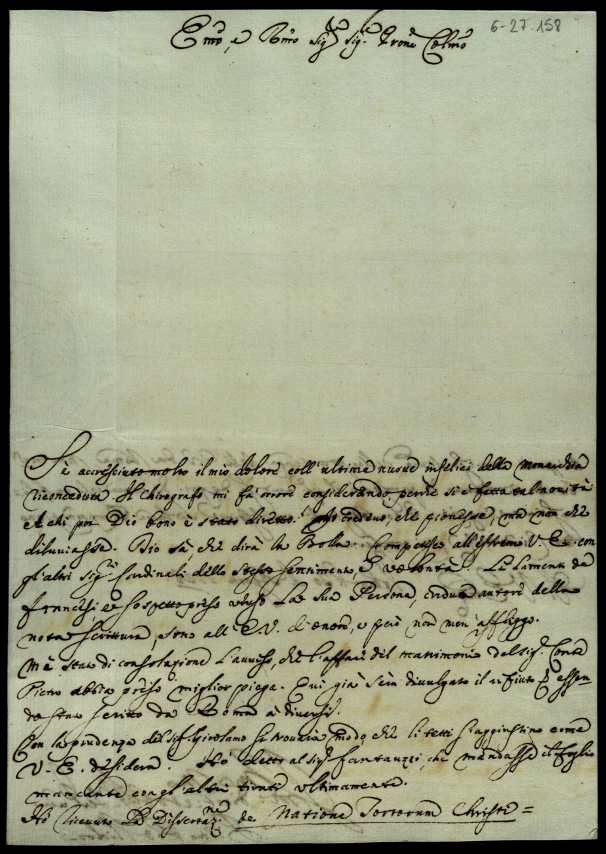 6-27.158
Emo, e Rmo Sig.r Sig.r Prone Colmo
S'è accresciuto molto il mio dolore coll'ultime nuove infelici della
riconceduta. Il Chirografo mi fà orrore considerando, perche si è fatta
et a chi poi Dio bono è stato diretto! credeuo, che piouesse, mà non che
diluuiasse. Dio sà, che dirà Compatisco all'estremo V. E. con
gl'altri Sig.ri Cardinali dello stesso sentimento, e uolontà. Li lamenti de
francesi, e 'l sospetto preso uerso La sua Persona, autore della
nota scrittura, sono all'E.V. d'onore, e però non men'affliggo.
M'è stato di consolazione l'auuiso, che l'affare del matrimonio del Sig.r Conte
Piero abbia preso miglior piega. Quì già s'era diuulgato il rifiuto p essere
stato scritto da Roma à diuersi.
Con la prudenza del Sig.r Girolamo si trouarà modo, che li tetti s'aggiustino come
V. E. desidera. Hò detto al Sig.r Fantauzzi, che mandasse il foglio
mancante con gl'altri ultimamente.
Hò riceuuto La Dissertaz.ne de Natione Tortorum Christi =